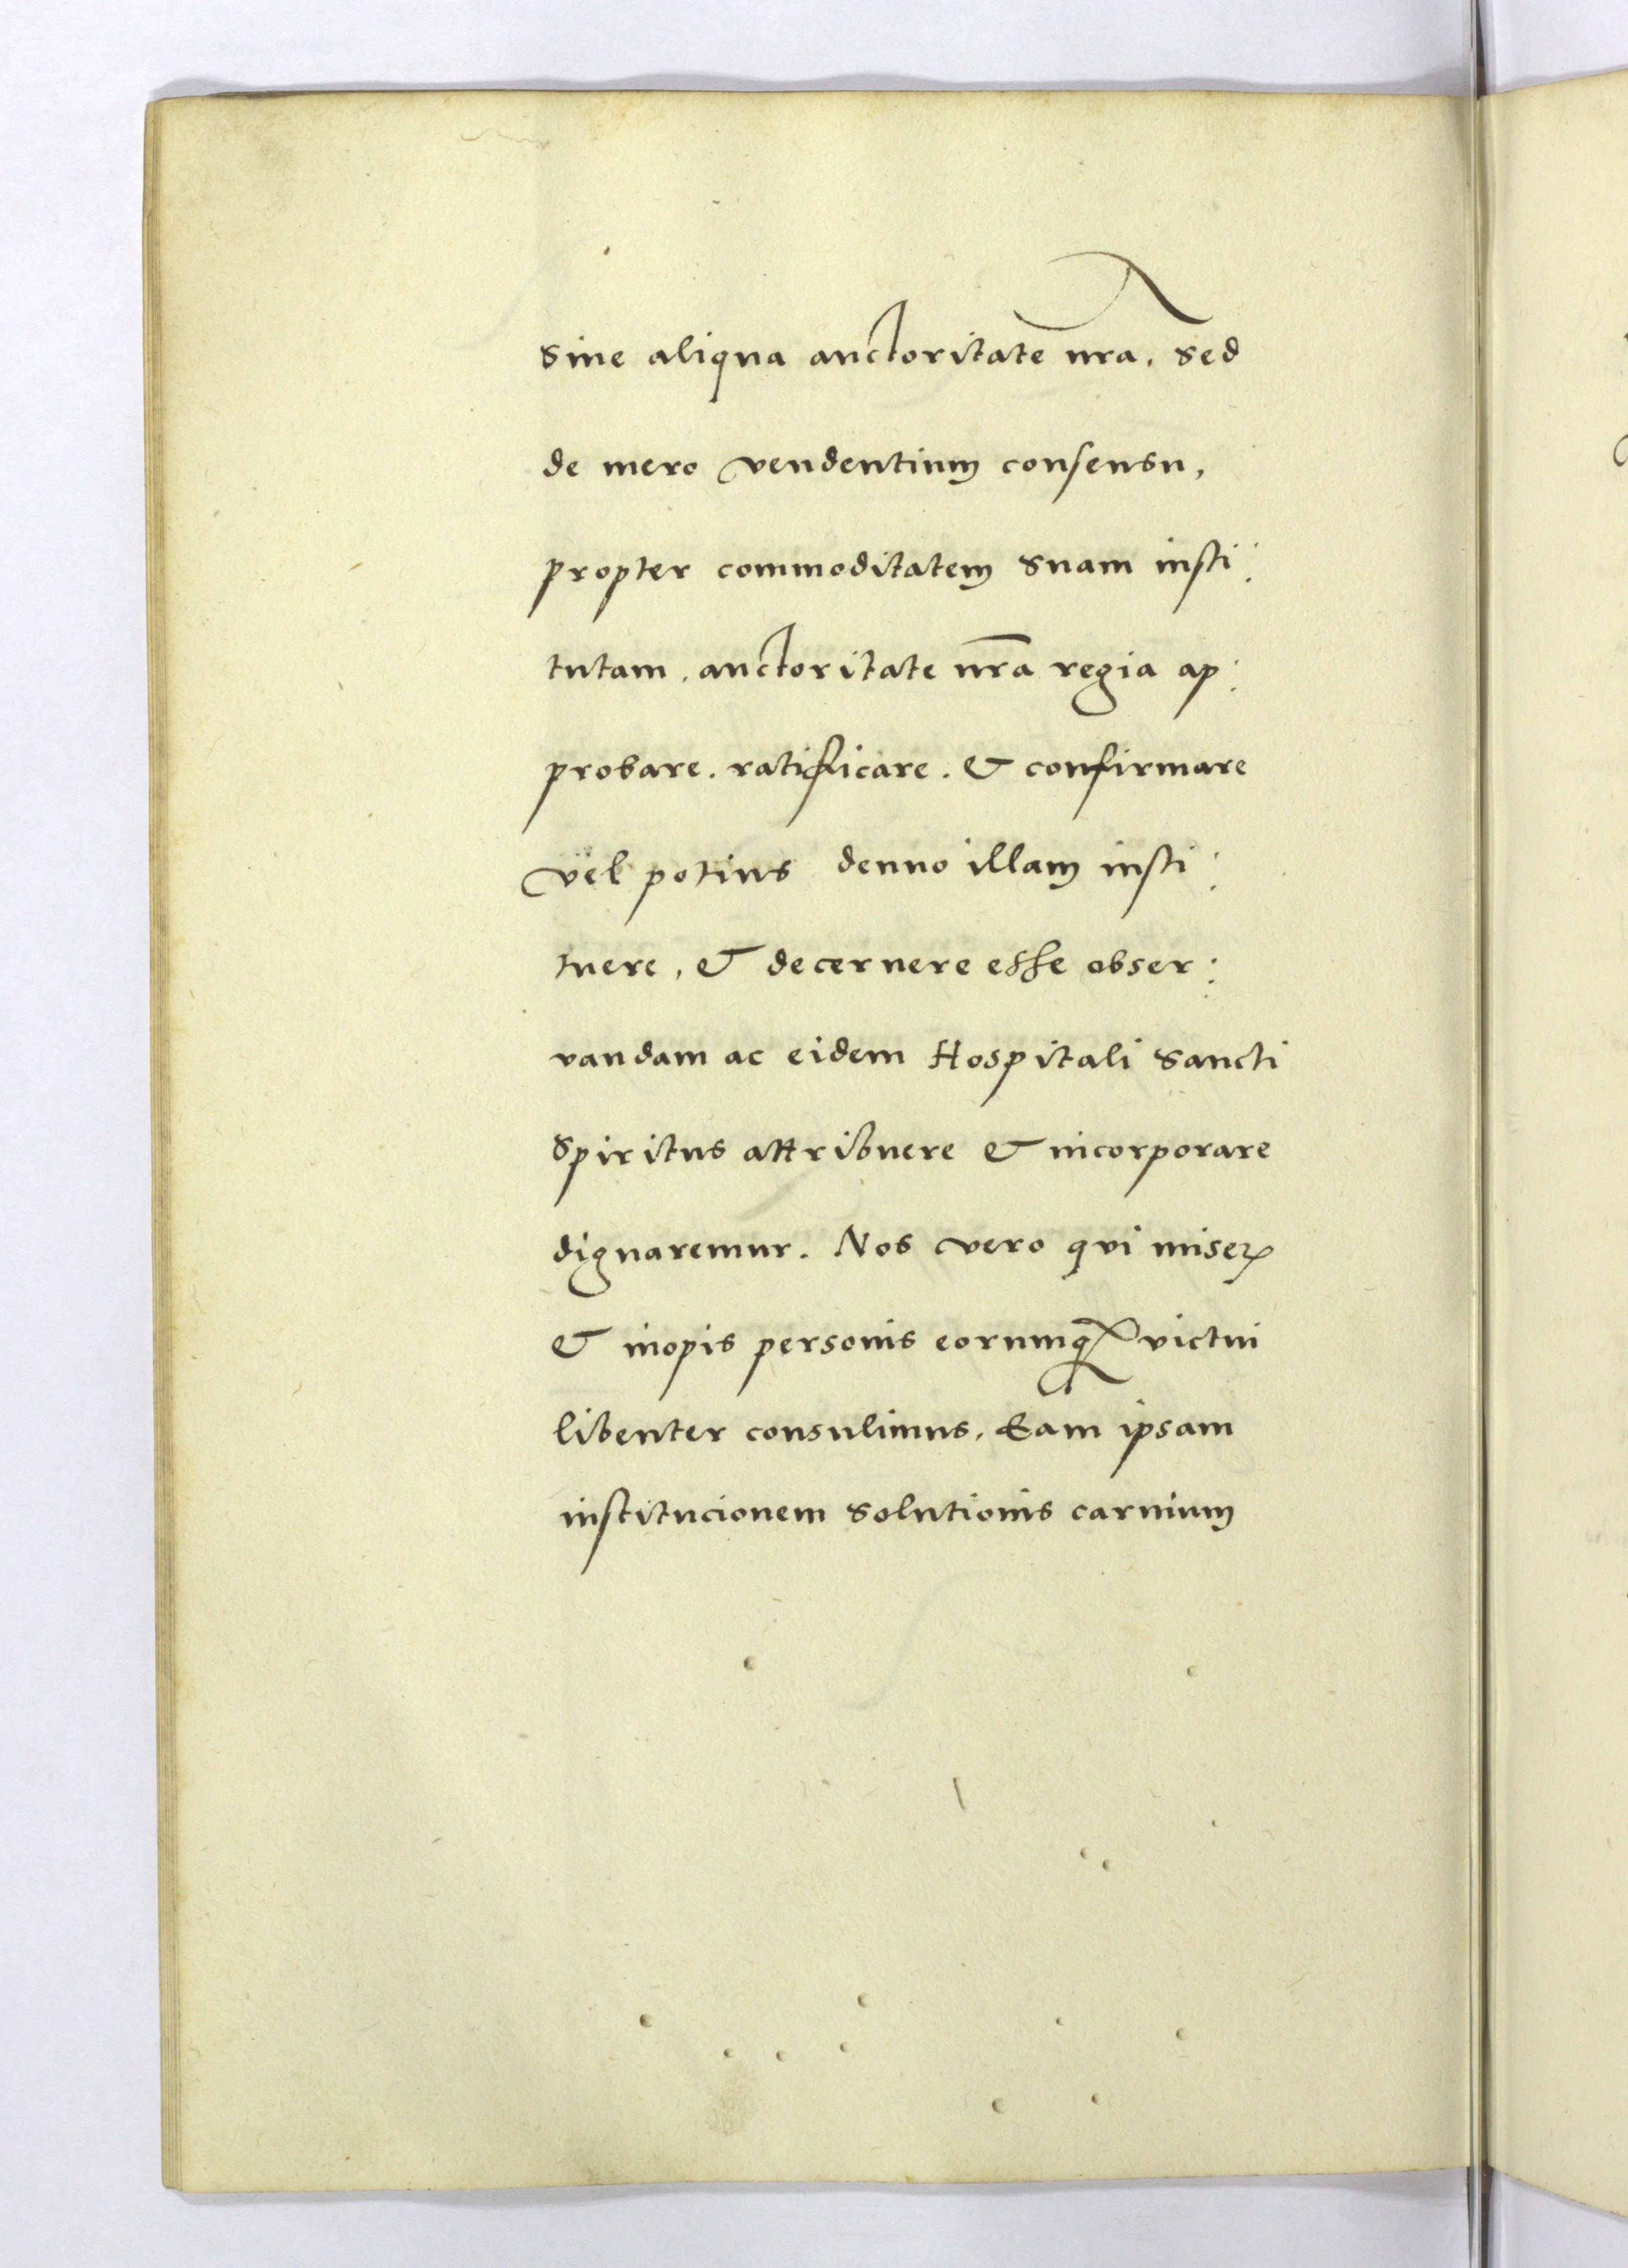 sine aliqua auctoritate nr̄a. sed
de mero vendentium consensu,
propter commoditatem suam insti:
tutam. auctoritate nr̄a regia ap:
probare. ratificare. & confirmare
vel potius denuo illam insti:
tuere, & decernere esse obser:
vandam ac eidem Hospitali sancti
Spiritus attribuere & incorporare
dignaremur. Nos vero qui miseꝝ
& inopis personis eorumqꝫ victui
libenter consulimus. Eam ipsam
institucionem solutionis carnium